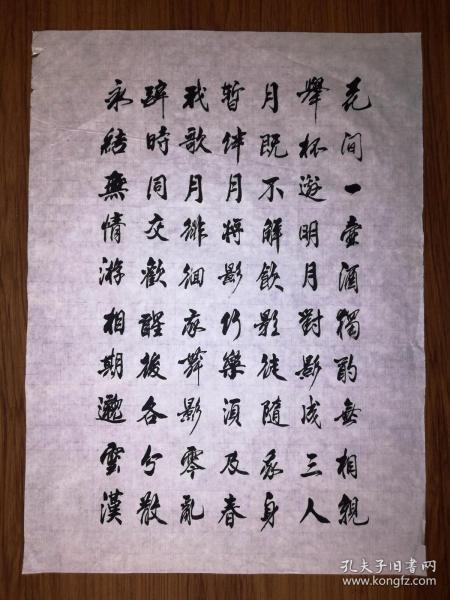 花間一壺酒獨酌無相親
舉杯邀明月對影成三人
月既不解飲影徒隨我身
暫伴月將影行樂須及春
我歌月徘徊我舞影零亂
醉時同交歡醒後各分散
永結無情游相期邈雲漢
孔夫子旧书网
www.kongfz.com